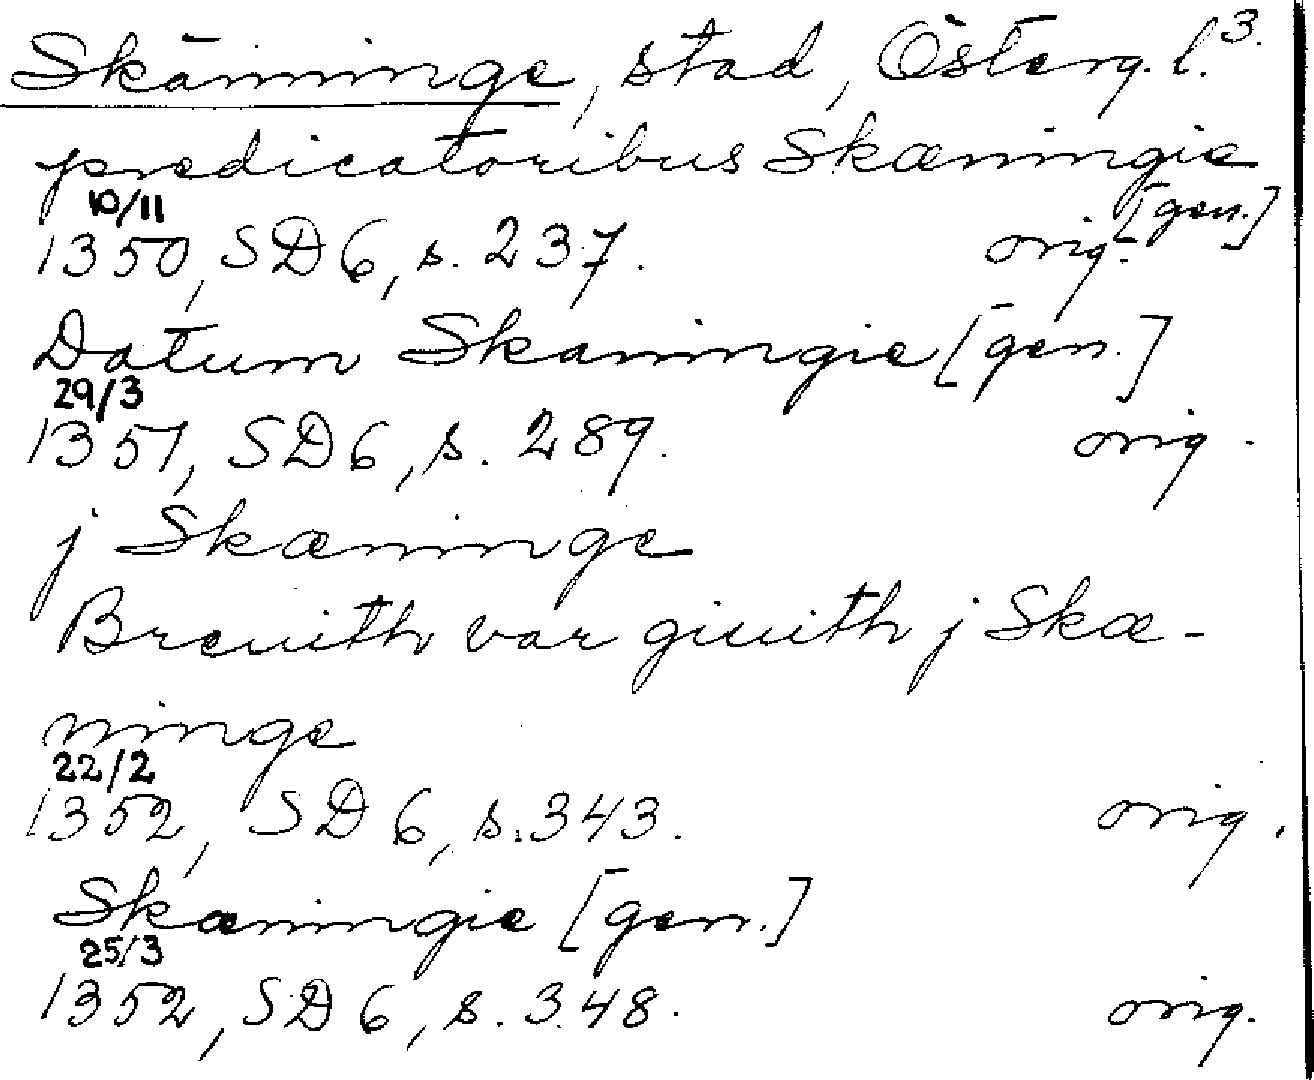 Skänninge, stad, Österg. l. 3.
predicatoribus Skæningie
[gen.]
10/11
1350, SD 6, s. 237. orig.
Datum Skæningie [gen.]
29/3
1351, SD 6, s. 289. orig.
j Skæninge
Breuith var giuith j Skæ-
ninge
22/2
1352, SD 6, s. 343. orig.
Skæningie [gen.]
25/3
1352, SD 6, s. 348. orig.